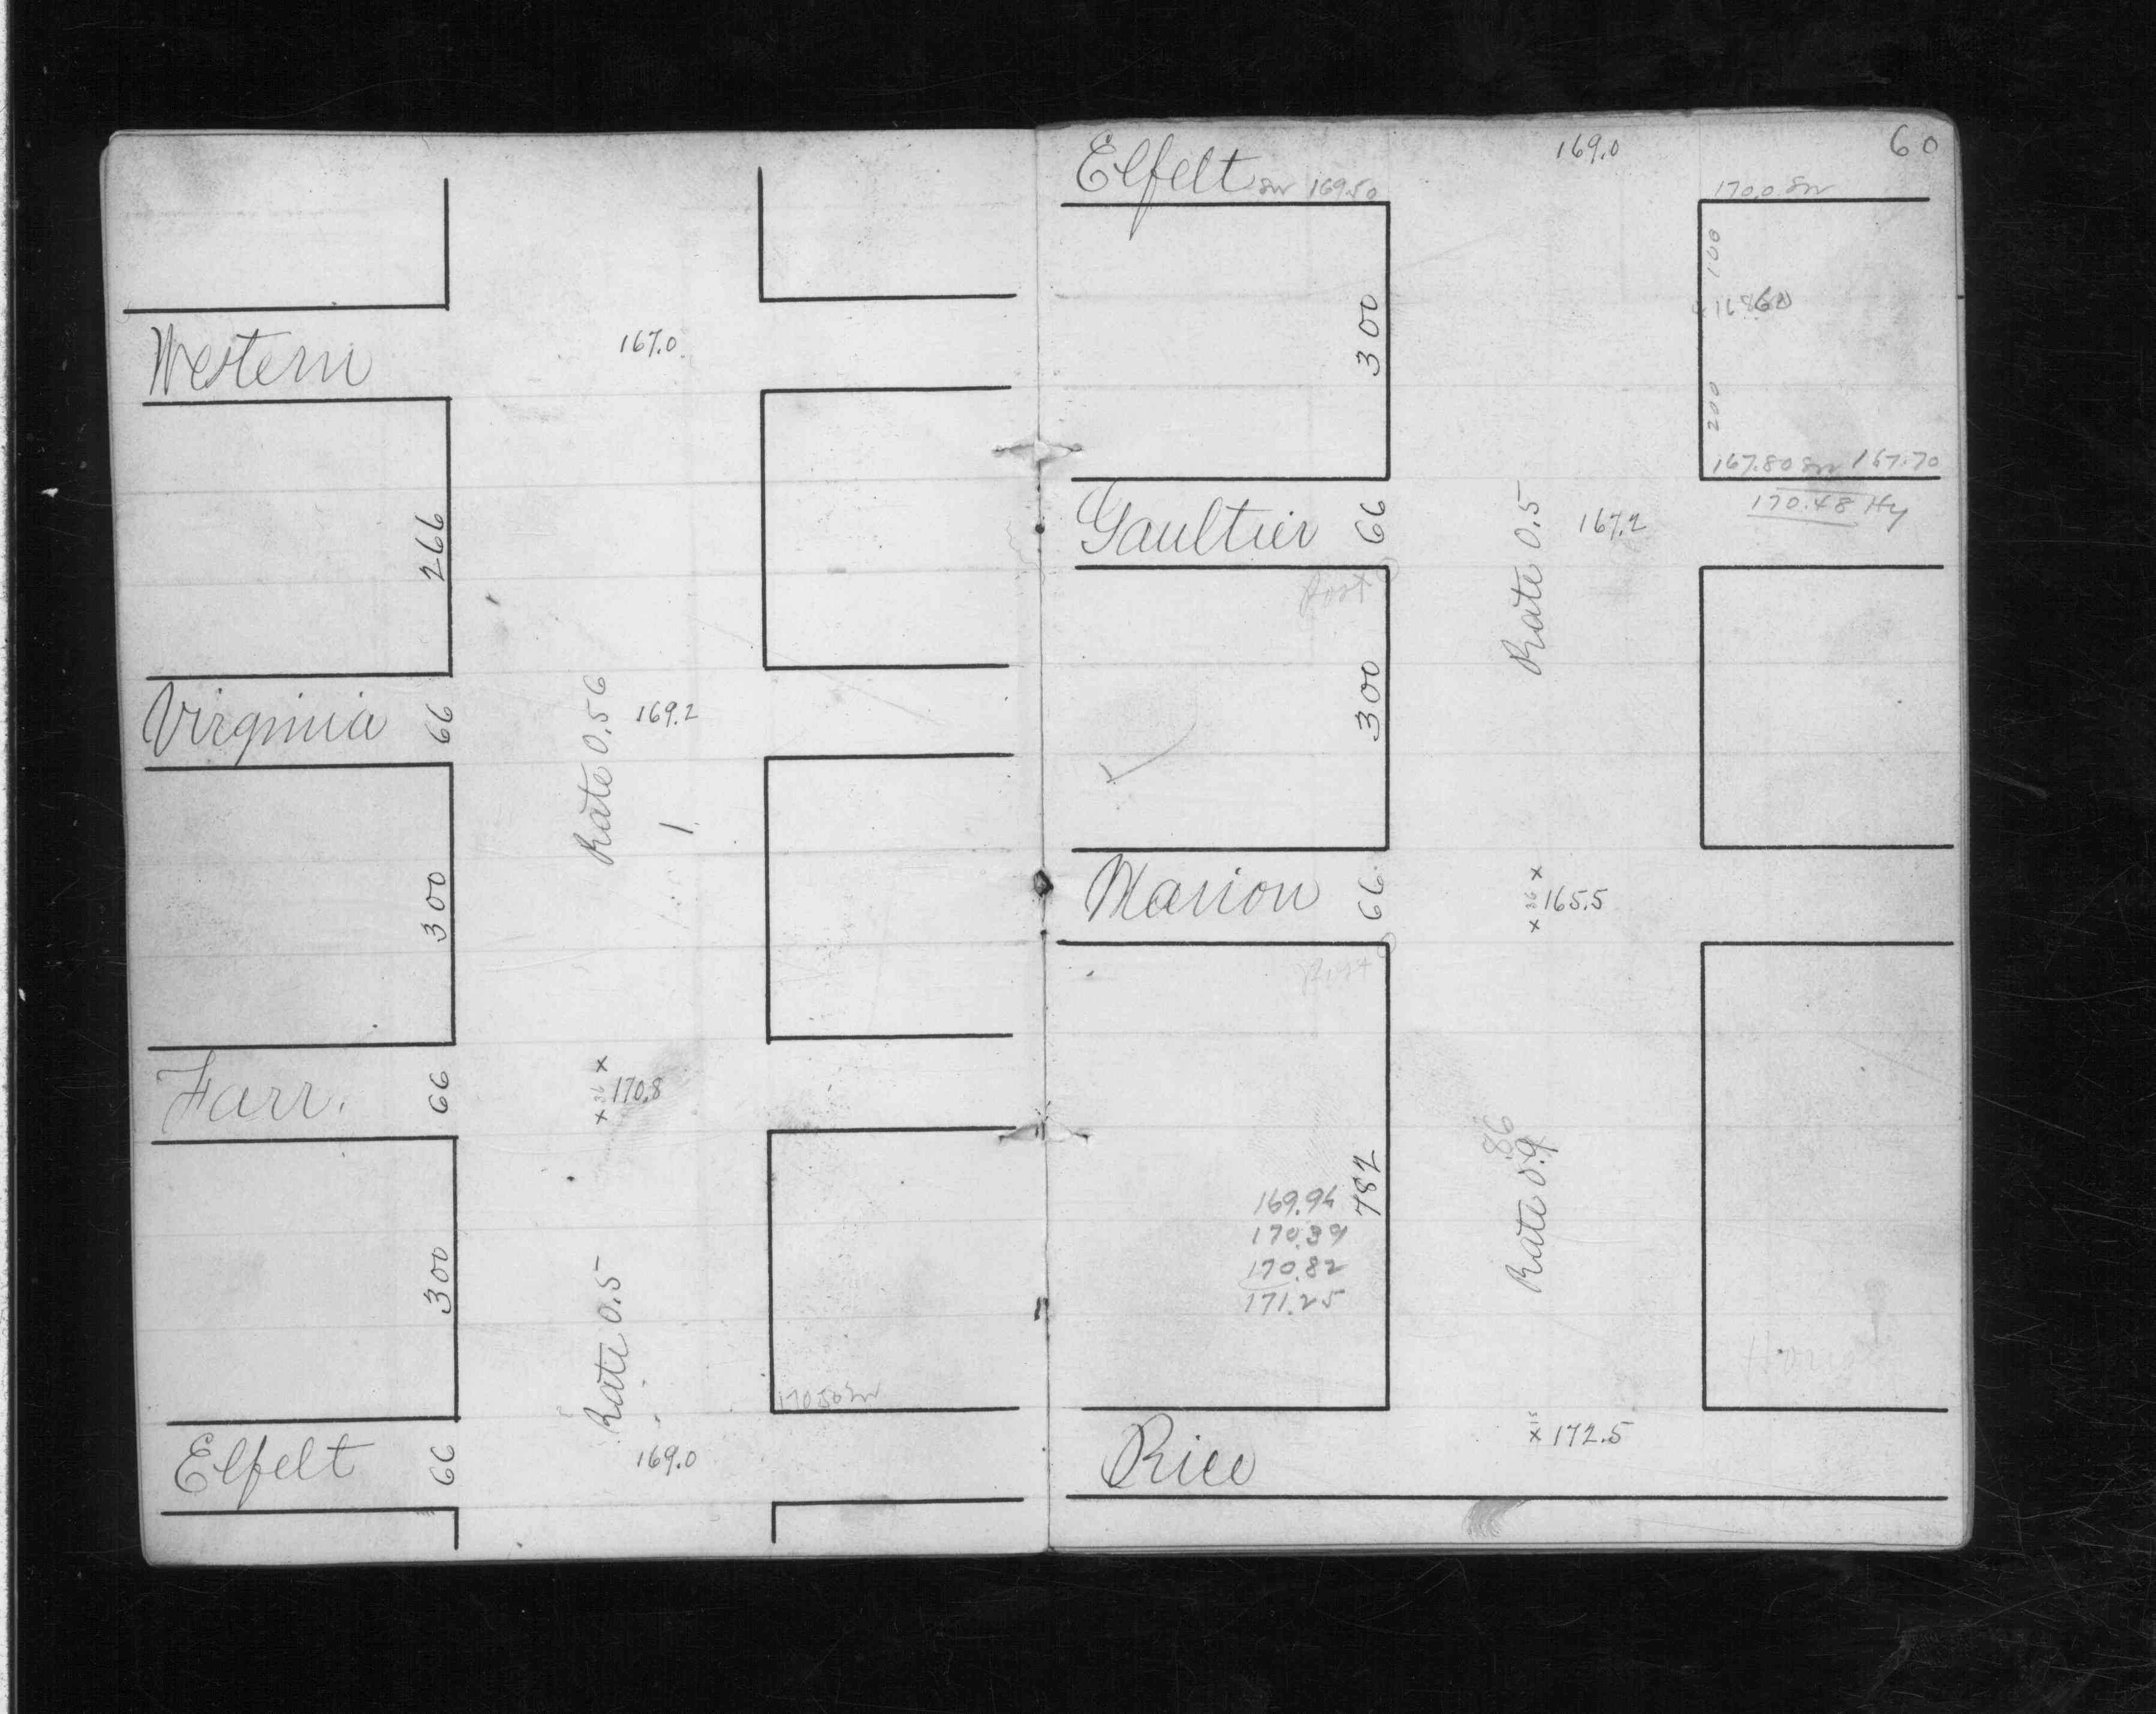 Western
167.0
266
Virginia 66
169.2
Rate 0.56
300
Farr. 66
x 36 x 170.8
300
Rate 0.5
170.50 Sw
Elfelt 66
169.0
60
Elfelt Sw 169.50
169.0
170.0 Sw
100
300
200
167.80 Sw 167.70
170.48 Hy
Gaultier 66
Rate 0.5
167.2
Post
300
Marion 66
x 36 x 165.5
Post
782
.86
Rate 0.9
169.94
170.39
170.82
171.25
Rice
x 172.5